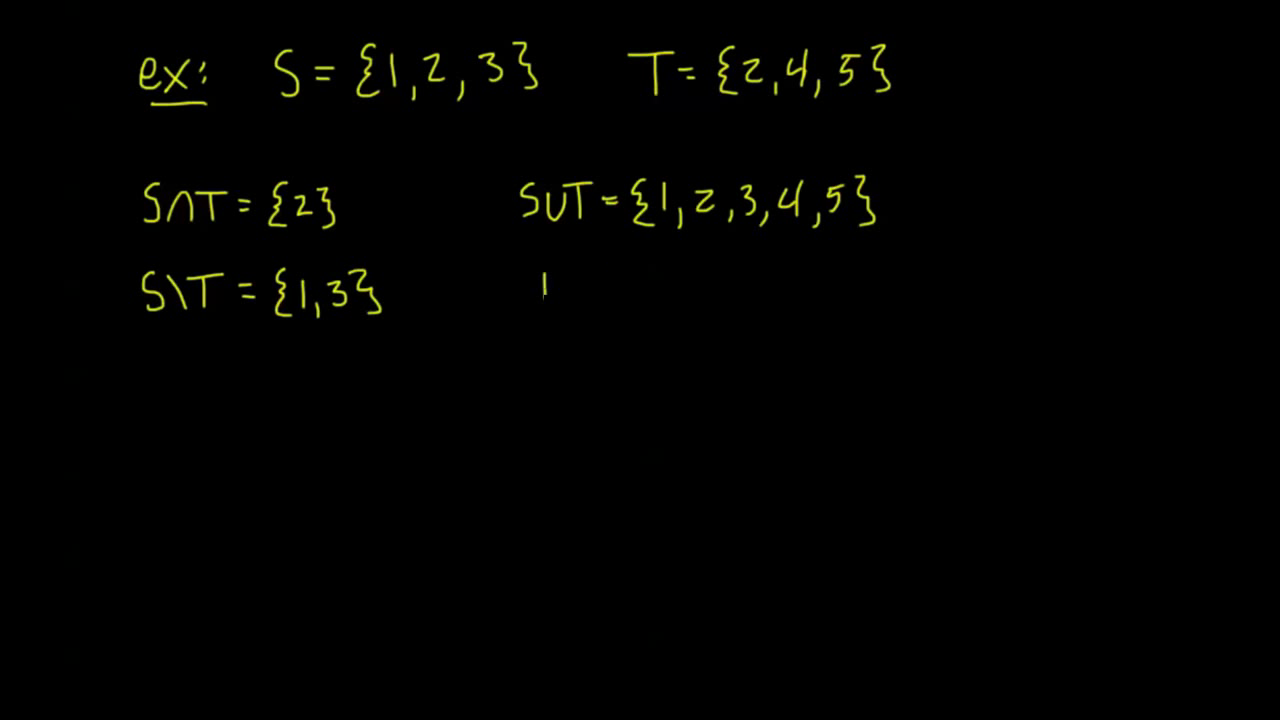 ex: S = {1,2,3} T = {2,4,5}
S∩T = {2} S∪T = {1,2,3,4,5}
S\T = {1,3}